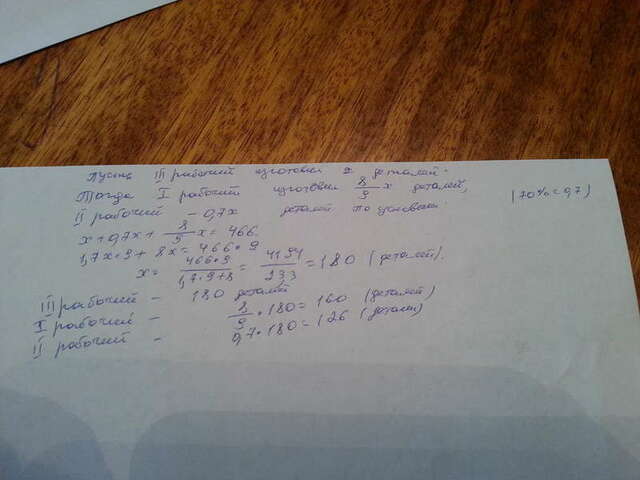 Пусть III рабочий изготовил x деталей.
Тогда I рабочий изготовил 8/9 x деталей,
II рабочий - 0,7x деталей по условию. (70% = 0,7)
x + 0,7x + 8/9 x = 466.
1,7x • 9 + 8x = 466 • 9
x = 466•9 / 1,7•9+8 = 4194 / 233 = 180 (деталей).
III рабочий - 180 деталей
I рабочий - 8/9 • 180 = 160 (деталей)
II рабочий - 0,7 • 180 = 126 (детали)